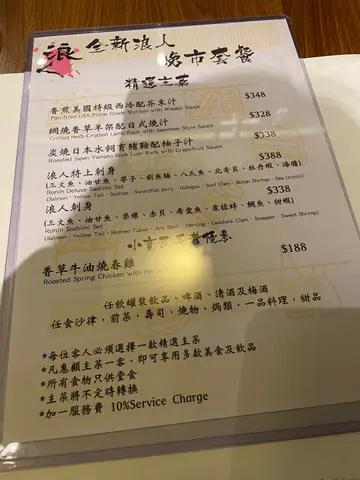 浪 全新浪人
晚市套餐
精選主菜
香煎美國特級西冷配芥末汁 $348
Pan-fried USA Prime Grade Shirloin with Wasabi Sauce
網燒香草羊架配日式燒汁 $328
Grilled Herb Crusted Lamb Rack with Japanese Style Sauce
炭燒日本水飼育豬鞍配柚子汁 $338
Roasted Japan Yamato Pork Loin Rack with Grapefruit Sauce
浪人特上刺身 $388
(三文魚、油甘魚、帶子、劍魚腩、八爪魚、北寄貝、牡丹蝦、海膽)
Ronin Deluxe Sashimi Set
(Salmon、Yellow Tail、Scallop、Swordfish Belly、Octopus、Surf Clam、Botan Shrimp、Sea Urchin)
浪人刺身 $338
(三文魚、油甘魚、赤貝、希靈魚、象拔蚌、鯛魚、甜蝦)
Ronin Sashimi Set
(Salmon、Yellow Tail、Ark Shell、Herring、Geoduck Clam、Snapper、Sweet Shrimp)
小童及長者優惠
香草牛油燒春雞 $188
Roasted Spring Chicken with Herb
任飲罐裝飲品、啤酒、清酒及梅酒
任食沙律，前菜，壽司，燒物，焗類，一品料理，甜品
*每位客人必須選擇一款精選主菜
*凡惠顧主菜一客，即可享用多款美食及飲品
*所有食物只供堂食
*主菜將不定時轉換
*加一服務費 10%Service Charge